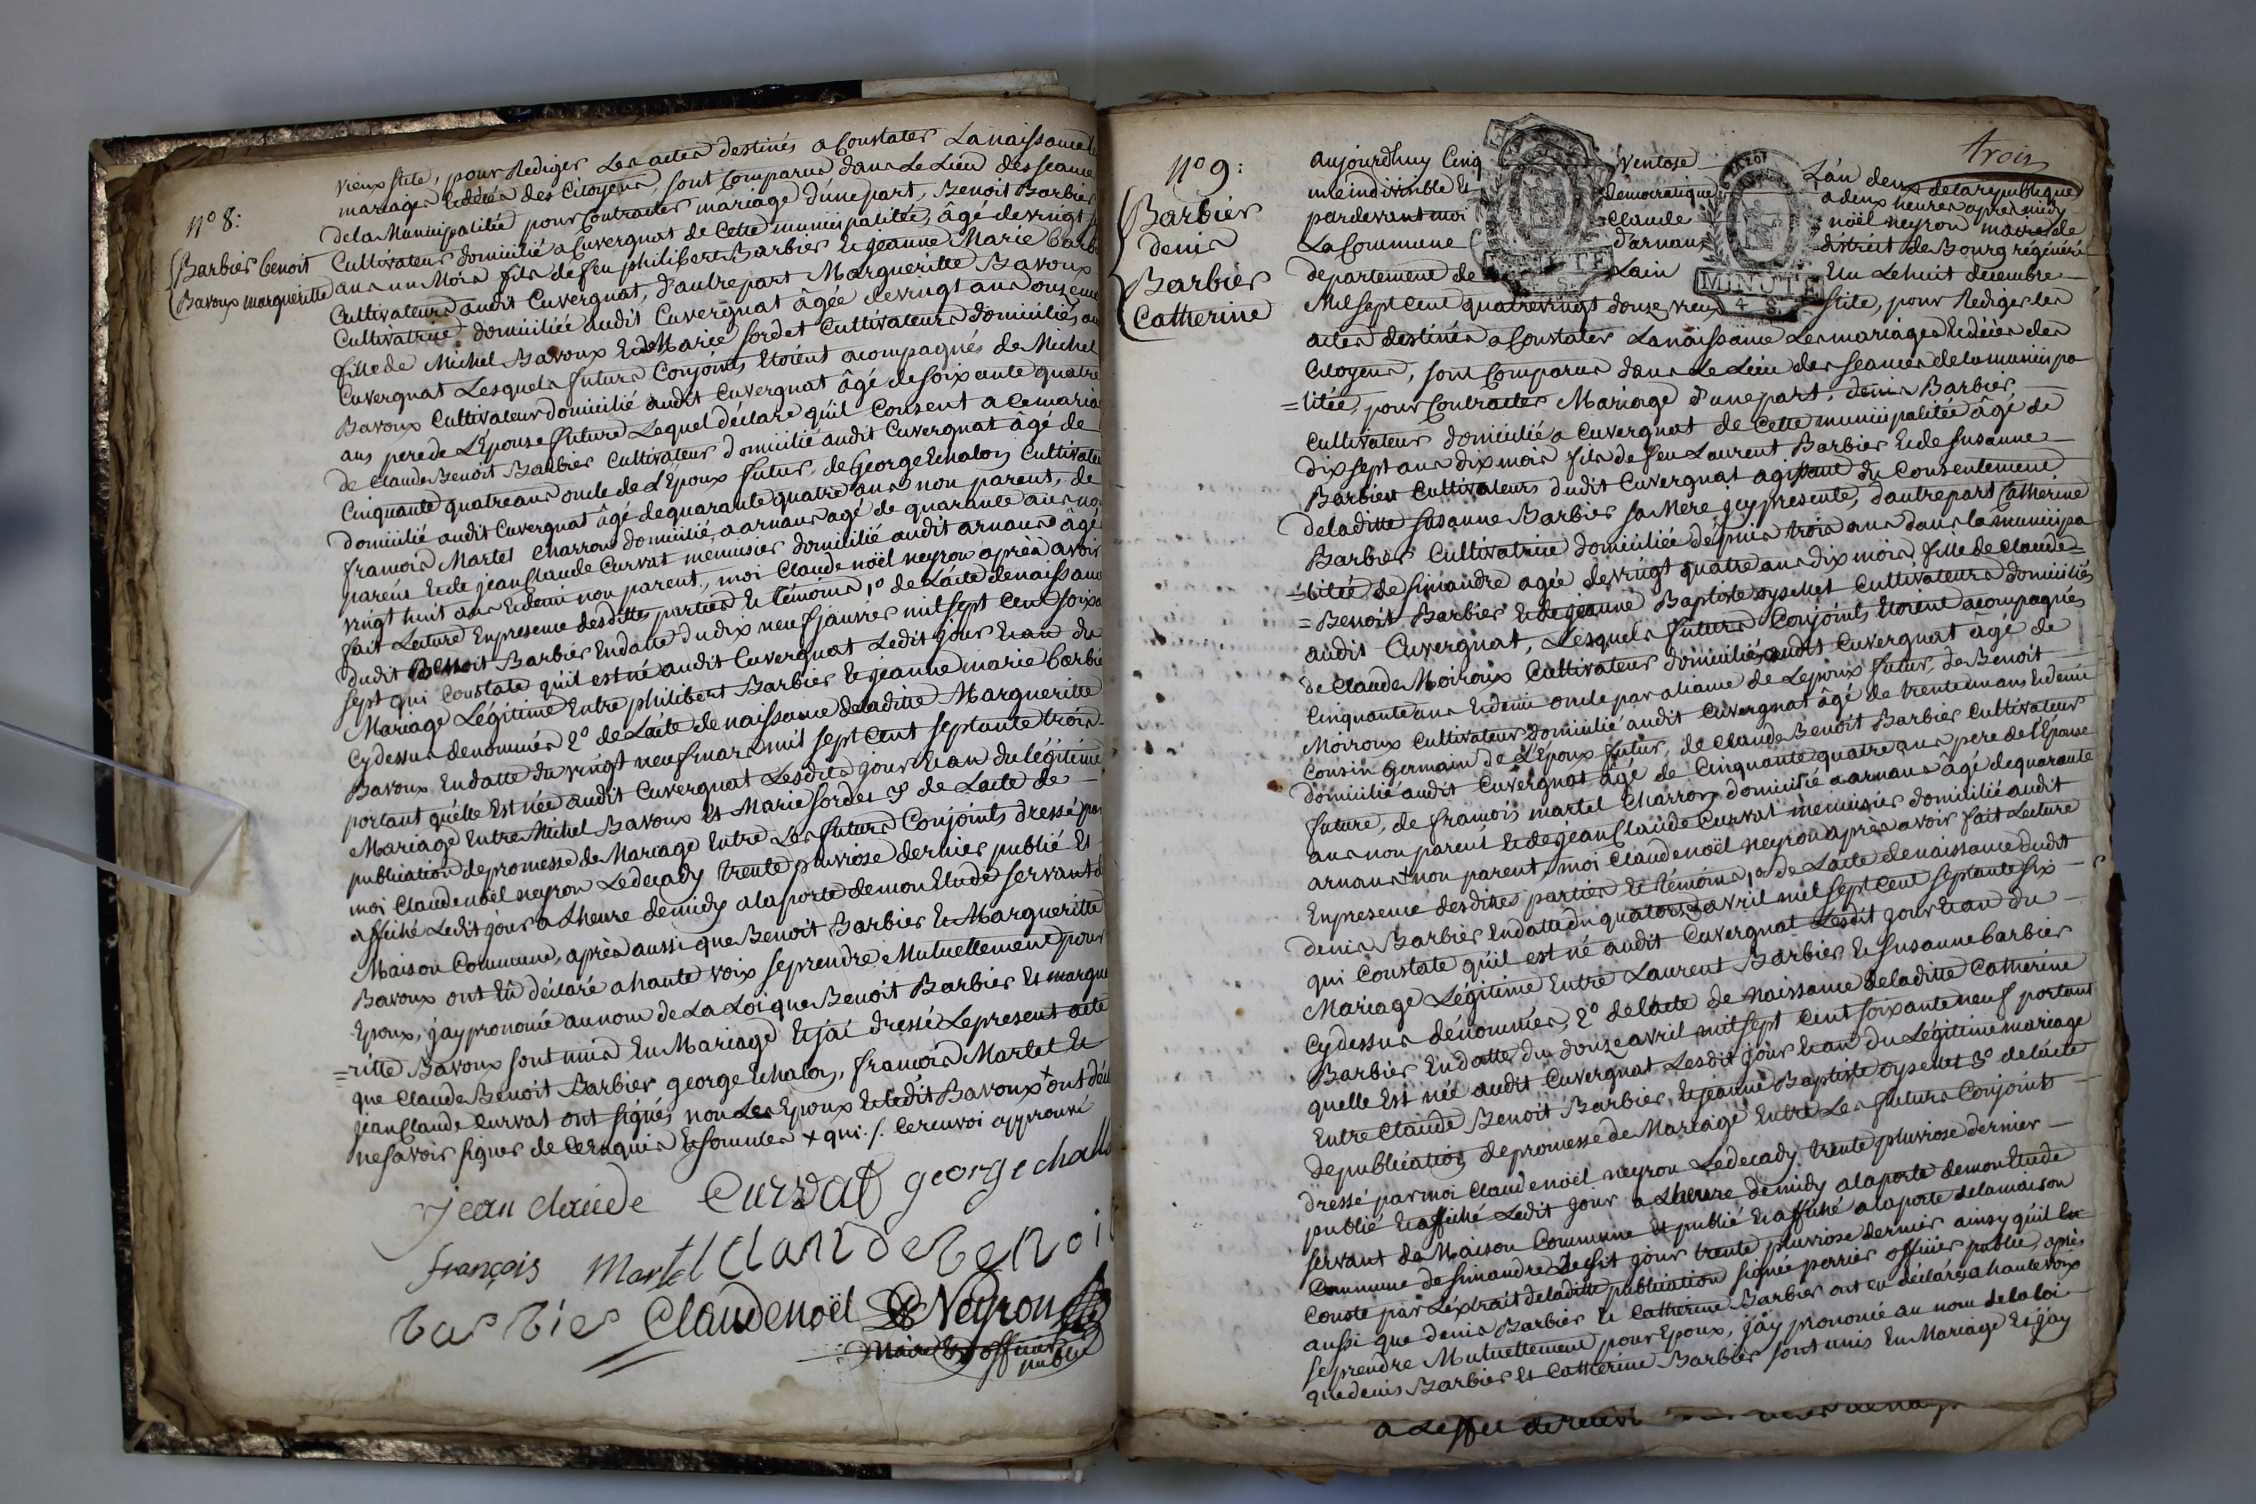 N° 8:
Barbier benoit
Bavoux margueritte
vieux stile, pour Rediger Les actes destinés a Constater La naissance
mariages Et décès des Citoyens, sont Comparus dans Le Lieu des seances
de la Municipalitée pour Contracter mariage d'une part, Benoit Barbier
Cultivateur domicilié a Cuvergnat de Cette municipalitée, âgé de vingt
ans un Mois fils de feu philibert Barbier Et jeanne Marie Barbier
Cultivateurs audit Cuvergnat, d'autre part Margueritte Bavoux
Cultivatrice domiciliée audit Cuvergnat âgée de vingt ans onze
fille de Michel Bavoux Et de Marie sordet Cultivateurs domiciliés au
Cuvergnat Lesquels futurs Conjoints Etoient acompagnés de Michel
Bavoux Cultivateur domicilié audit Cuvergnat âgé de soixante quatre
ans pere de L'Epouse future Lequel déclare qu'il Consent a Ce maria
de Claude Benoit Barbier Cultivateur domicilié audit Cuvergnat âgé de
Cinquante quatre ans oncle de L'Epoux futur, de George Echalon Cultivateur
domicilié audit Cuvergnat âgé de quarante quatre ans non parent, de
francois Martel Charron domicilié a arnans agé de quarante ans non
parent Et de jean Claude Curvat menuisier domicilié audit arnans âgé
vingt huit ans Et demi non parent, moi Claude noël neyron après avoir
fait Lecture En presence desdittes parties Et témoins, 1° de L'acte de naissance
dudit Benoit Barbier En datte du dix neuf janvier mil sept Cent soixante
sept qui Constate qu'il est né audit Cuvergnat Ledit jour Et an du
Mariage Légitime Entre philibert Barbier Et jeanne marie barbier
Cy dessus denommés 2° de L'acte de naissance de laditte Margueritte
Bavoux En datte du vingt neuf mars mil sept Cent septante trois
portant qu'elle Est née audit Cuvergnat Lesdits jour Et an du légitime
Mariage Entre Michel Bavoux Et Marie sordet 3° de L'acte de
publication de promesse de Mariage Entre Les futurs Conjoints dressé par
moi Claude noël neyron Le decady trente pluviose dernier publié Et
affiché Ledit jour a Lheure de midy a la porte de mon Etude servant de
Maison Commune, après aussi que Benoit Barbier Et Margueritte
Bavoux ont Eû déclaré a haute voix se prendre Mutuellement pour
Epoux, j'ay prononcé au nom de La Loi que Benoit Barbier Et margue
=ritte Bavoux sont unis En Mariage Et j'ai dressé Le present acte
que Claude Benoit Barbier, george Echalon, francois Martel Et
jean Claude Curvat ont signés, non Les Epoux Et Ledit Bavoux x ont déc
ne savoir signer de Ce requis Et sommés x qui ./. Ce renvoi approuvé
jean claude Curvat george chalon
françois Martel Claude benoi
barbier Claude noël Neyron
Maire Et officier
public
trois
N° 9:
Barbier
denis
Barbier
Catherine
aujourd'huy Cinq Ventose L'an deux de la republique
une indivisible Et démocratique a deux heures apres midy
par devant moi Claude noël neyron maire de
La Commune d'arnans district de Bourg régénéré
departement de Lain Elu Le huit decembre
Mil sept Cent quatre vingt douze vieux stile, pour Rediger les
actes destinés a Constater La naissance Les mariages Et décès des
Citoyens, sont Comparus dans Le Lieu des seances de la municipa
=litée, pour Contracter Mariage d'une part, denis Barbier
Cultivateur domicilié a Cuvergnat de Cette municipalitée âgé de
dix sept ans dix mois fils de feu Laurent Barbier Et de susanne
Barbier Cultivateurs dudit Cuvergnat agissant du Consentement
de laditte susanne Barbier sa Mere icy presente, d'autre part Catherine
Barbier Cultivatrice domiciliée depuis trois ans dans la municipa
=litée de simandre agée de vingt quatre ans dix mois fille de Claude=
=Benoit Barbier Et de jeanne Baptiste oyselet Cultivateurs domiciliés
audit Cuvergnat, Lesquels futurs Conjoints Etoient acompagnés
de Claude Moiroux Cultivateur domicilié audit Cuvergnat âgé de
Cinquante ans Et demi oncle par aliance de Lepoux futur, de Benoit
Moiroux Cultivateur domicilié audit Cuvergnat âgé de trente un ans Et demi
Cousin Germain de L'Epoux futur, de Claude Benoit Barbier Cultivateur
domicilié audit Cuvergnat âgé de Cinquante quatre ans pere de l'Epouse
future, de francois martel Charron domicilié a arnans âgé de quarante
ans non parent Et de jean Claude Curvat menuisier domicilié audit
arnans non parent, moi Claude noël neyron après avoir fait Lecture
En presence desdittes parties Et témoins, 1° de L'acte de naissance dudit
denis Barbier En datte du quatorze avril mil sept Cent septante six
qui Constate qu'il est né audit Cuvergnat Lesdit jour Et an du
Mariage Légitime Entre Laurent Barbier Et susanne barbier
Cy dessus dénommés, 2° de l'acte de Naissance de laditte Catherine
Barbier En datte du douze avril mil sept Cent soixante neuf portant
quelle Est née audit Cuvergnat Lesdit jour Et an du Légitime mariage
Entre Claude Benoit Barbier, Et jeanne Baptiste oyselet 3° de l'acte
de publication de promesse de Mariage Entre Les futurs Conjoints
dressé par moi Claude noël neyron Le decady trente pluviose dernier
publié Et affiché Ledit jour a L'heure de midy a la porte de mon Etude
servant de Maison Commune Et publié Et affiché a la porte de la maison
Commune de simandre Ledit jour trente pluviose dernier ainsy qu'il En
Conste par L'extrait de laditte publication signée perrier officier public, après
aussi que denis Barbier Et Catherine Barbier ont eu déclarés a haute voix
se prendre Mutuellement pour Epoux, j'ay prononcé au nom de la loi
que denis Barbier Et Catherine Barbier sont unis En Mariage Et j'ay